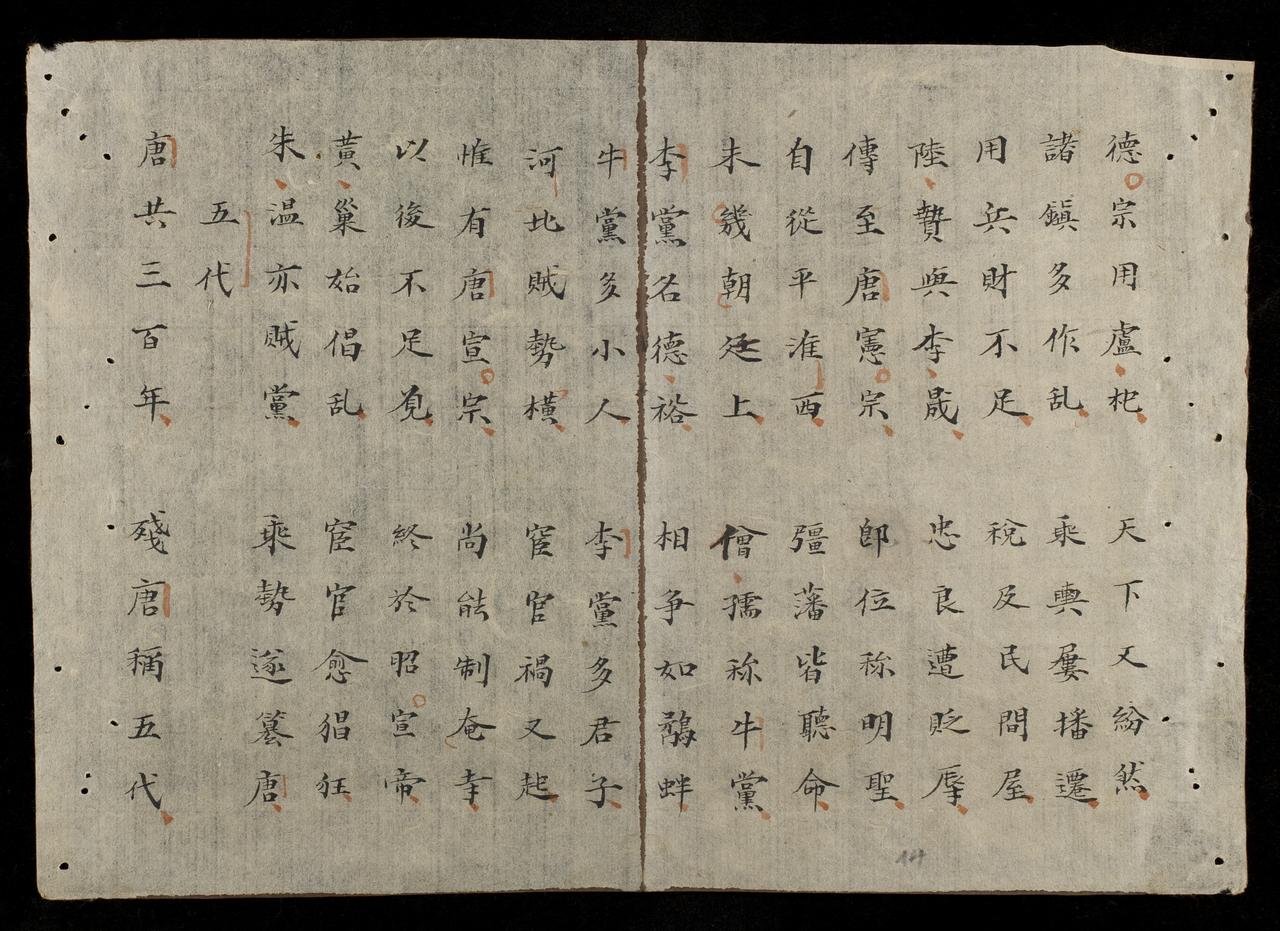 德宗用盧杞　天下又紛然
諸鎮多作乱　乘輿屢播遷
用兵財不足　稅及民間屋
陸贄與李晟　忠良遭貶辱
傳至唐憲宗　即位称明聖
自從平淮西　彊藩皆聽命
未幾朝廷上　僧孺称牛黨
李黨名德裕　相争如鷸蚌
牛黨多小人　李黨多君子
河北賊勢橫　宦官禍又起
惟有唐宣宗　尚能制奄寺
以後不足覌　終於昭宣帝
黃巢始倡乱　宦官愈猖狂
朱温亦賊黨　乘勢遂篡唐
五代
唐共三百年　殘唐稱五代
14